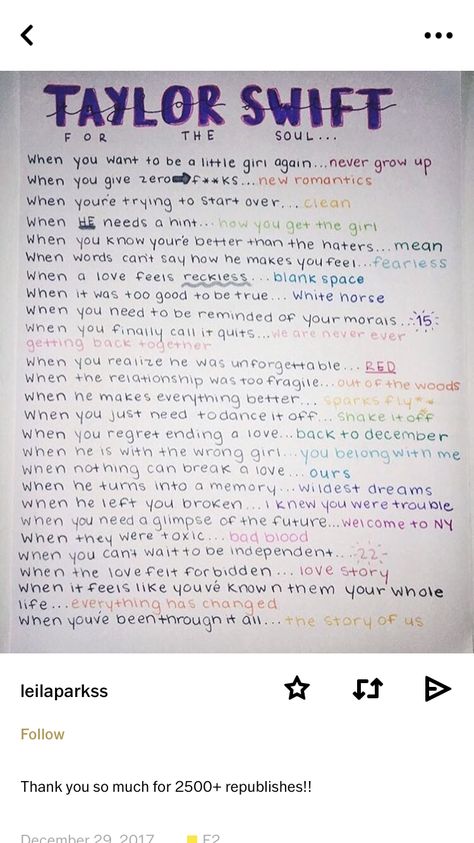 TAYLOR SWIFT
FOR THE SOUL...
When you want to be a little girl again...never grow up
When you give zero f**ks...new romantics
When you're trying to start over... clean
When HE needs a hint...how you get the girl
When you know you're better than the haters...mean
When words can't say how he makes you feel...fearless
When a love feels reckless... blank space
When it was too good to be true... white horse
When you need to be reminded of your morals...15
When you finally call it quits...we are never ever
getting back together
When you realize he was unforgettable... RED
When the relationship was too fragile...out of the woods
When he makes everything better... sparks fly
When you just need to dance it off... shake it off
When you regret ending a love...back to december
When he is with the wrong girl...you belong with me
When nothing can break a love... ours
When he turns into a memory...wildest dreams
When he left you broken...I knew you were trouble
When you need a glimpse of the future...welcome to NY
When they were toxic... bad blood
When you can't wait to be independent...22
When the love felt forbidden... love story
When it feels like you've known them your whole
life...everything has changed
When you've been through it all...the story of us
leilaparkss
Follow
Thank you so much for 2500+ republishes!!
December 29, 2017 F2